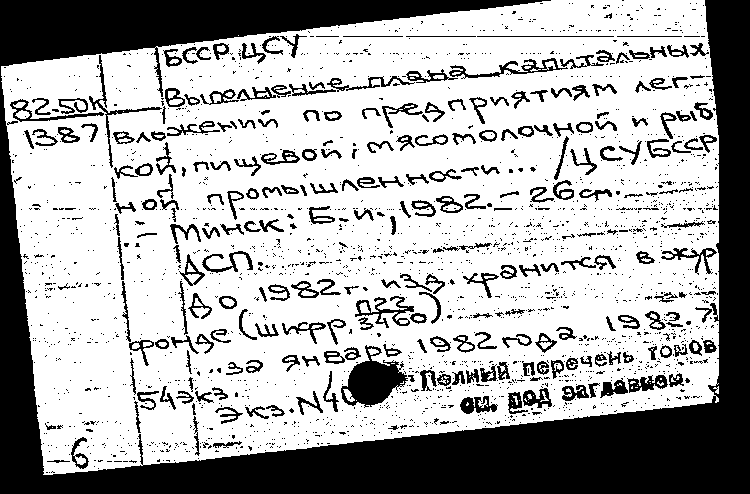 БССР. ЦСУ
82-50к Выполнение плана капитальных
1387 вложений по предприятиям лег-
кой, пищевой, мясомолочной и рыб
ной промышленности... /ЦСУ БССР
.- Минск: Б. и., 1982. - 26 см.
ДСП.
До 1982 г. изд. хранится в жур
фонде (шифр. П22/3460).
...за январь 1982 года. 1982.
54 экз.
Экз. N 40
Полный перечень томов
см. под заглавием.
6